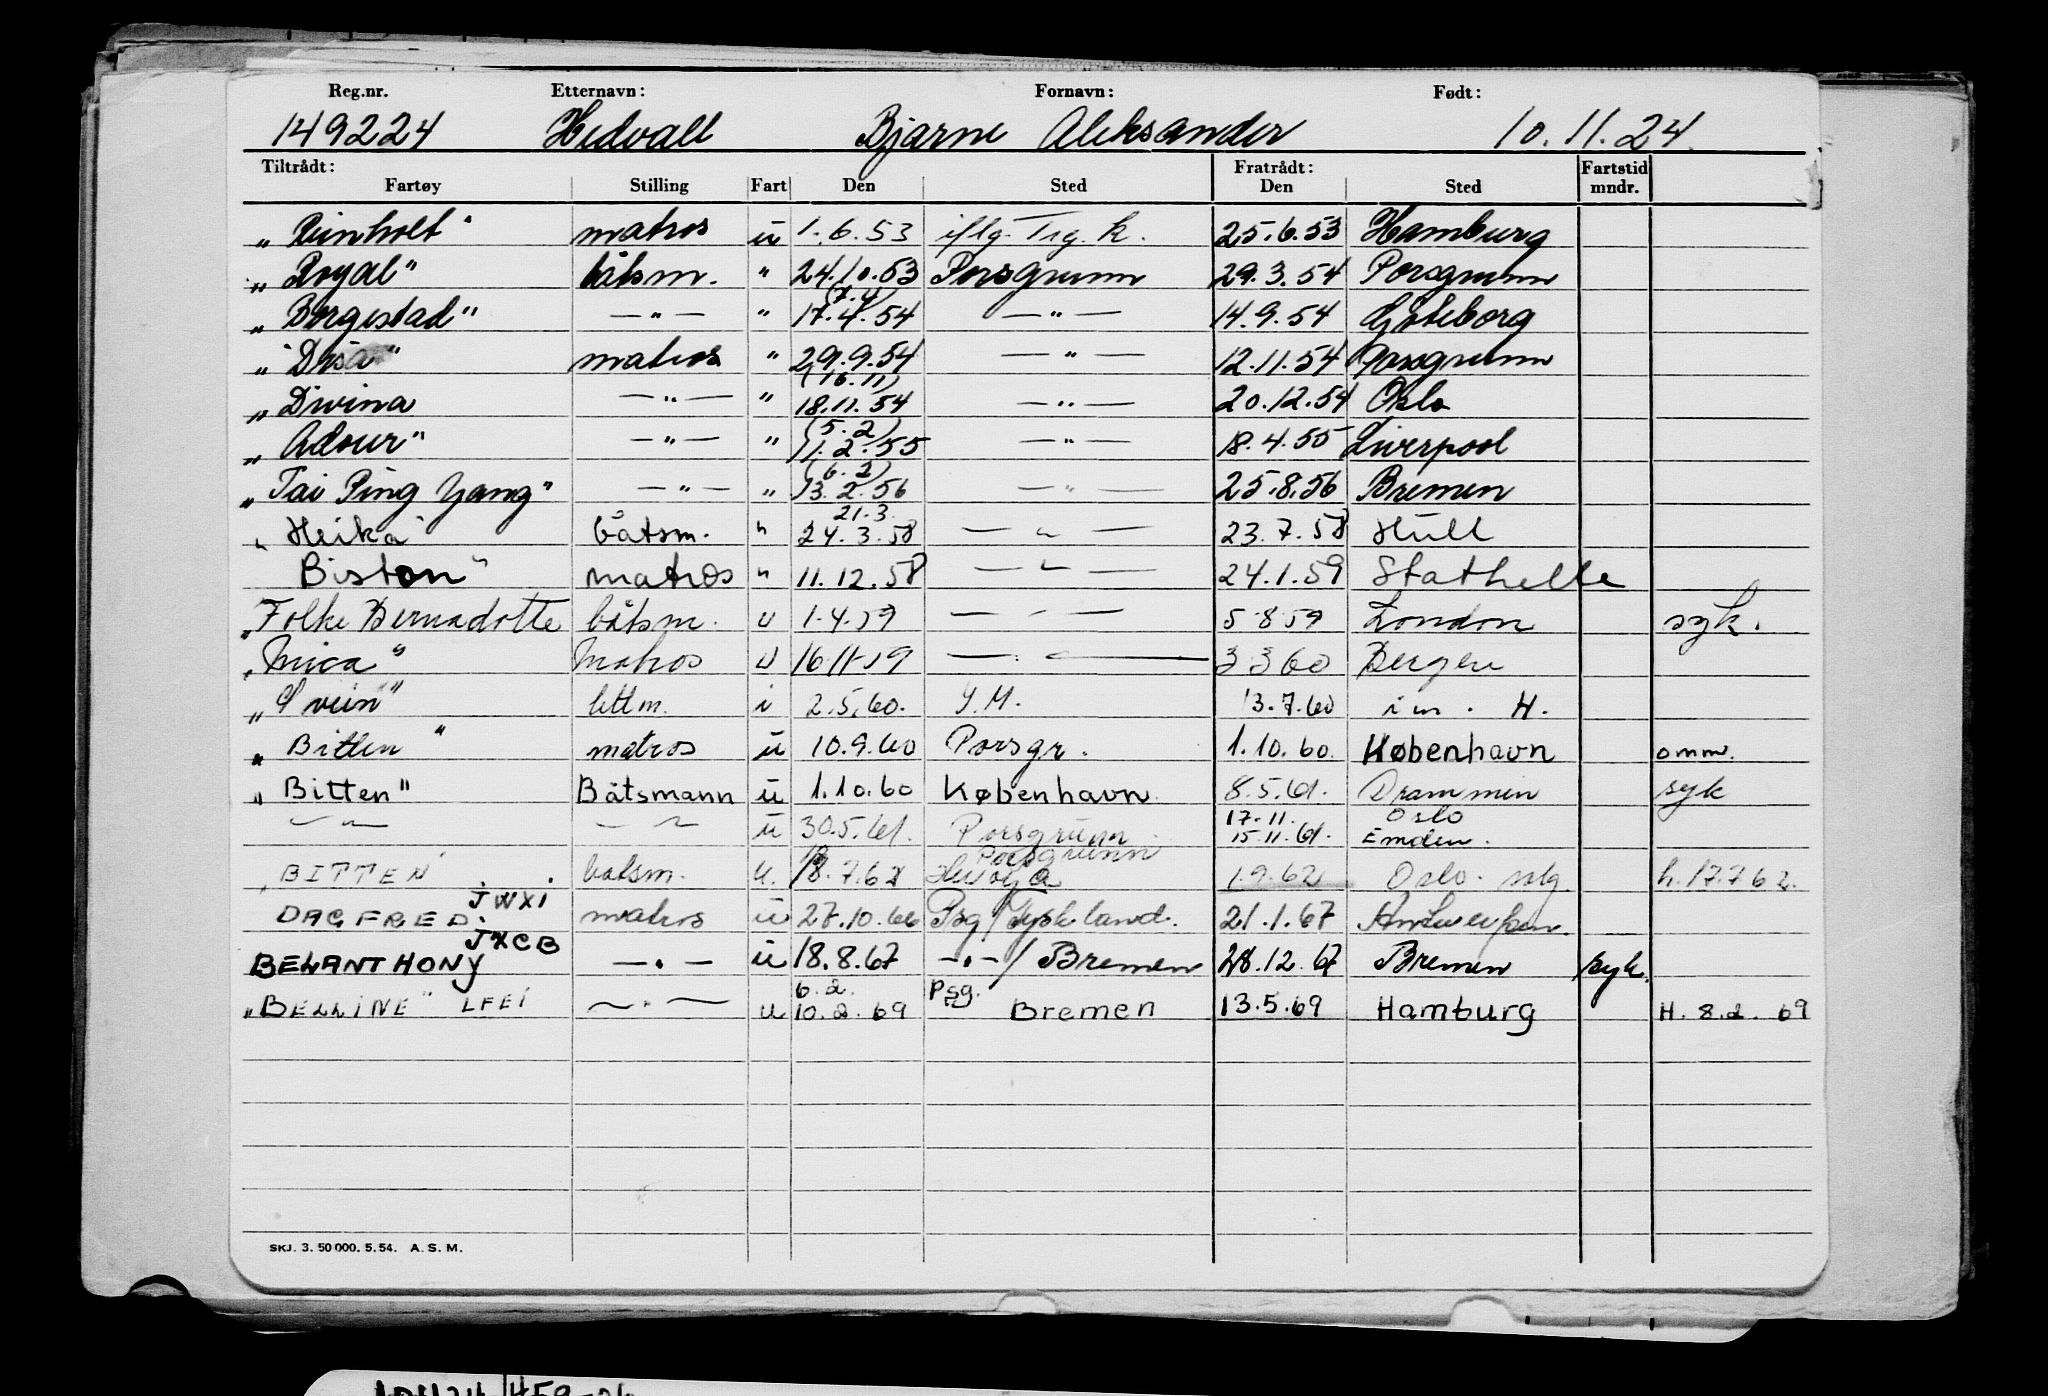 Reg.nr. Etternavn: Fornavn: Født:
149224 Hedvall Bjarne Aleksander 10.11.24.
Tiltrådt: Fratrådt: Fartstid
Fartøy Stilling Fart Den Sted Den Sted mndr.
" " matros ü 1.6.53 iflg. Trg. k. 25.6.53 Hamburg
" Royal" båtsm. " 24.10.53 Porsgrunn 29.3.54 Porsgrunn
(7.4)
" Borgestad" — " — " 17.4.54 — " — 14.9.54 Göteborg
" Disa" matros " 29.9.54 — " — 12.11.54 Porsgrunn
(16.11)
" Divina — " — " 18.11.54 — " — 20.12.54 Oslo
(5.2)
" Adour" — " — " 11.2.55 — " — 18.4.55 Liverpool
(6.2)
" Tai Ping Yang" — " — " 13.2.56 — " — 25.8.56 Bremen
21.3.
" Heika" båtsm. " 24.3.58 — " — 23.7.58 Hull
Biston" matros " 11.12.58 — " — 24.1.59 Stathelle
" Folke Bernadotte båtsm. u 1.4.59 — " — 5.8.59 London syk.
" Mica" Matros u 16.11.59 — " — 3.3.60 Bergen
" Svein" lettm. i 2.5.60. Y.M. 13.7.60 i m. H.
" Bitten " matros ü 10.9.60 Porsgr. 1.10.60. København omm.
" Bitten" Båtsmann ü 1.10.60 København 8.5.61. Drammen syk
— " — — " — ü 30.5.61. Porsgrunn 17.11. Oslo
15.11.61. Emden.
Porsgrunn
" BITTEN" båtsm. u. 18.7.62 Herøya 1.9.62 Oslo h. 17.7.62.
JWXI
DAGFRED. matros ü 27.10.66 Psg/Tyskland. 21.1.67 Antwerpen.
JXCB
BELANTHONY — " — ü 18.8.67 — " —/ Bremen 28.12.67 Bremen syk.
6.2. Psg.
" BELLINE" LFEI — " — u 10.2.69 Bremen 13.5.69 Hamburg H. 8.2.69
SKJ. 3. 50 000. 5. 54. A. S. M.